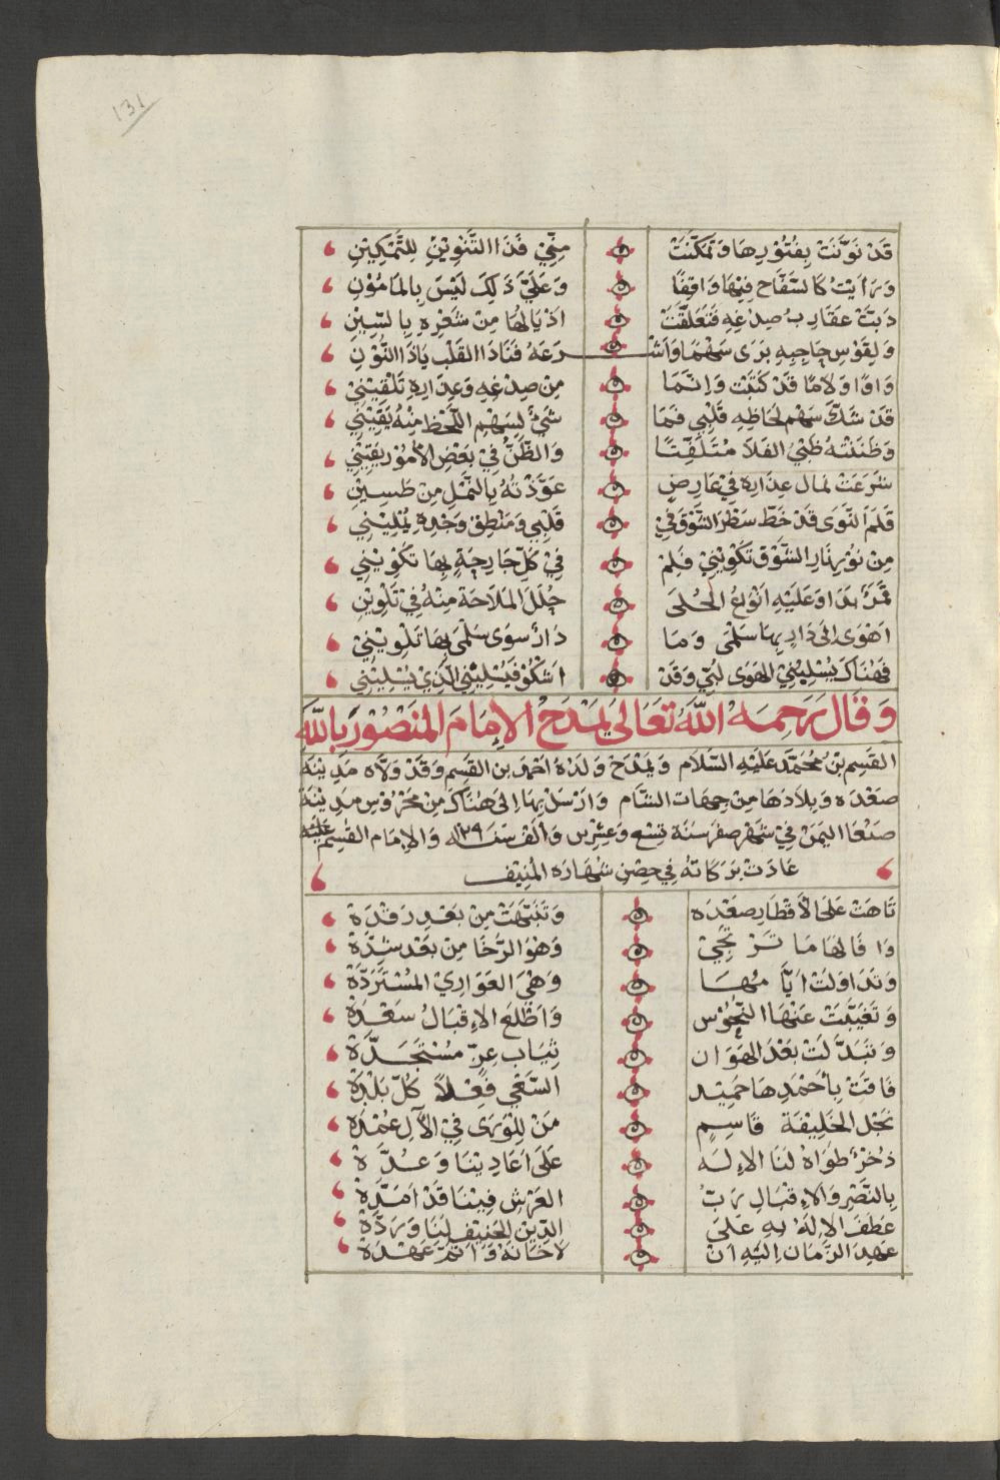 131
قَدْ نَوَّنَتْ بِفُتُوْرِهَا وَتَمَكَّنَتْ مِنِّيْ فَذَا التَّنْوِيْنُ لِلتَّمْكِيْنِ
وَرَاَيْتُ كَالسَّفَّاحِ فِيْهَا وَاقِفًا وَعَلَيَّ ذَلِكَ لَيْسَ بِالمَامُوْنِ
دَبَّتْ عَقَارِبُ صِدْغِهِ فَتَعَلَّقَتْ اذْيَالُهَا مِنْ شَعْرِهِ بِالسِّيْنِ
وَلِقَوْسِ حَاجِبِهِ بَرَى سَهْمًا وَاشْـ ـرَعَهُ فَنَادَا القَلْبُ يَاذَا النُّوْنِ
وَاوًا وَلَامًا قَدْ كَتَبْتَ وَاِنَّمَا مِنْ صِدْغِهِ وَعِذَارِهِ تَلْقِيْنِيْ
قَدْ شَكَّ سَهْمُ لِحَاظِهِ قَلْبِي فَمَا شَيْءٌ لِسَهْمِ اللَّحْظِ مِنْهُ يَقِيْنِي
وَظَنَنْتُهُ ظَبْيَ الفَلَا مُتَلَفِّتًا وَالظَّنُّ فِيْ بَعْضِ الأُمُوْرِ يَقِيْنِي
شَرَعَتْ نِمَالُ عِذَارِهِ فِيْ عَارِضٍ عَوَّذْتُهُ بِالنَّمْلِ مِنْ طٰسِيْنِ
قَلَمُ النَّوَى قَدْ خَطَّ سَطْرَ الشَّوْقِ فِيْ قَلْبِي وَمَنْطِقُ وَجْدِهِ يُمْلِيْنِي
مِنْ نُوْرِ نَارِ الشَّوْقِ تَكْوِيْنِيْ فَلِمْ فِيْ كُلِّ جَارِحَةٍ بِهَا تَكْوِيْنِي
قَمَرٌ بَدَا وَعَلَيْهِ اَنْوَاعُ الحُلَى حُلَلُ المَلَاحَةِ مِنْهُ فِيْ تَلْوِيْنِ
اهْوَى اِلَى دَارٍ بِهَا سَلْمَى وَمَا دَارٌ سِوَى سَلْمَى بِهَا تَلْوِيْنِيْ
فَهُنَاكَ يَسْلِبُنِيْ الهَوَى لُبِّي وَقَدْ اشْكُوْ فَيُسْلِيْنِي الَّذِيْ يُسْلِيْنِي
وَقَالَ رَحِمَهُ اللَّهُ تَعَالَى يَمْدَحُ الاِمَامَ المَنْصُوْرَ بِاللَّهِ
القَسِمَ بْنَ مُحَمَّدٍ عَلَيْهِ السَّلَام وَيَمْدَحُ وَلَدَهُ احْمَدَ بن القَسِمِ وَقَدْ وَلَّاه مَدِيْنَة
صَعْدَه وَبِلَادَهَا مِنْ جِهَاتِ الشَّام وَارْسَلَ بِهَا اِلَى هُنَاكَ مِنْ مَحْرُوْسِ مَدِيْنَة
صَنْعَا اليَمَنِ فِيْ شَهْرِ صَفَرَ سَنَة تِسْعٍ وَعِشْرِيْنَ وَأَلْف سَنَة ١٠٢٩ وَالاِمَام القَسِم عَلَيْهِ
عَادَتْ بَرَكَاتهُ فِي حِصْنِ شَهَارَه المُنِيْف
تَاهَتْ عَلَى الأَقْطَارِ صَعْدَه وَتَنَبَّهَتْ مِنْ بَعْدِ رَقْدَهْ
وَافَا لَهَا مَا تَرْتَجِيْ وَهُوَ الرَّخَا مِنْ بَعْدِ شِدَّهْ
وَتَدَاوَلَتْ ايَّامُهَا وَهْيَ العَوَارِيْ المُسْتَرَدَّهْ
وَتَغَيَّبَتْ عَنْهَا النُّحُوْس وَاَطْلَعَ الاِقْبَالُ سَعْدَهْ
وَتَبَدَّلَتْ بَعْدَ الهَوَان ثِيَابَ عِزٍّ مُسْتَجَدَّهْ
فَاقَتْ بِأَحْمَدِهَا حَمِيْدِ السَّعْيِ فِعْلًا كُلَّ بَلْدَهْ
نَجْلِ الخَلِيْفَةِ قَاسِمٍ مَنْ لِلْوَرَى فِي الآلِ عُمْدَهْ
ذُخْرٌ طَوَاهُ لَنَا الاِلَه عَلَى اَعَادِيْنَا وَعُدَّهْ
بِالنَّصْرِ وَالاِقْبَالِ رَبُّ العَرْشِ فِيْنَا قَدْ اَمَدَّهْ
عَطَفَ الاِلَهُ بِهِ عَلَى الدِّيْنِ الحَنِيْفِ لَنَا وَرَدَّهْ
عَهِدَ الزَّمَانُ اِلَيْهِ انْ لَا خَانَهُ وَاَتَمَّ عَهْدَهْ